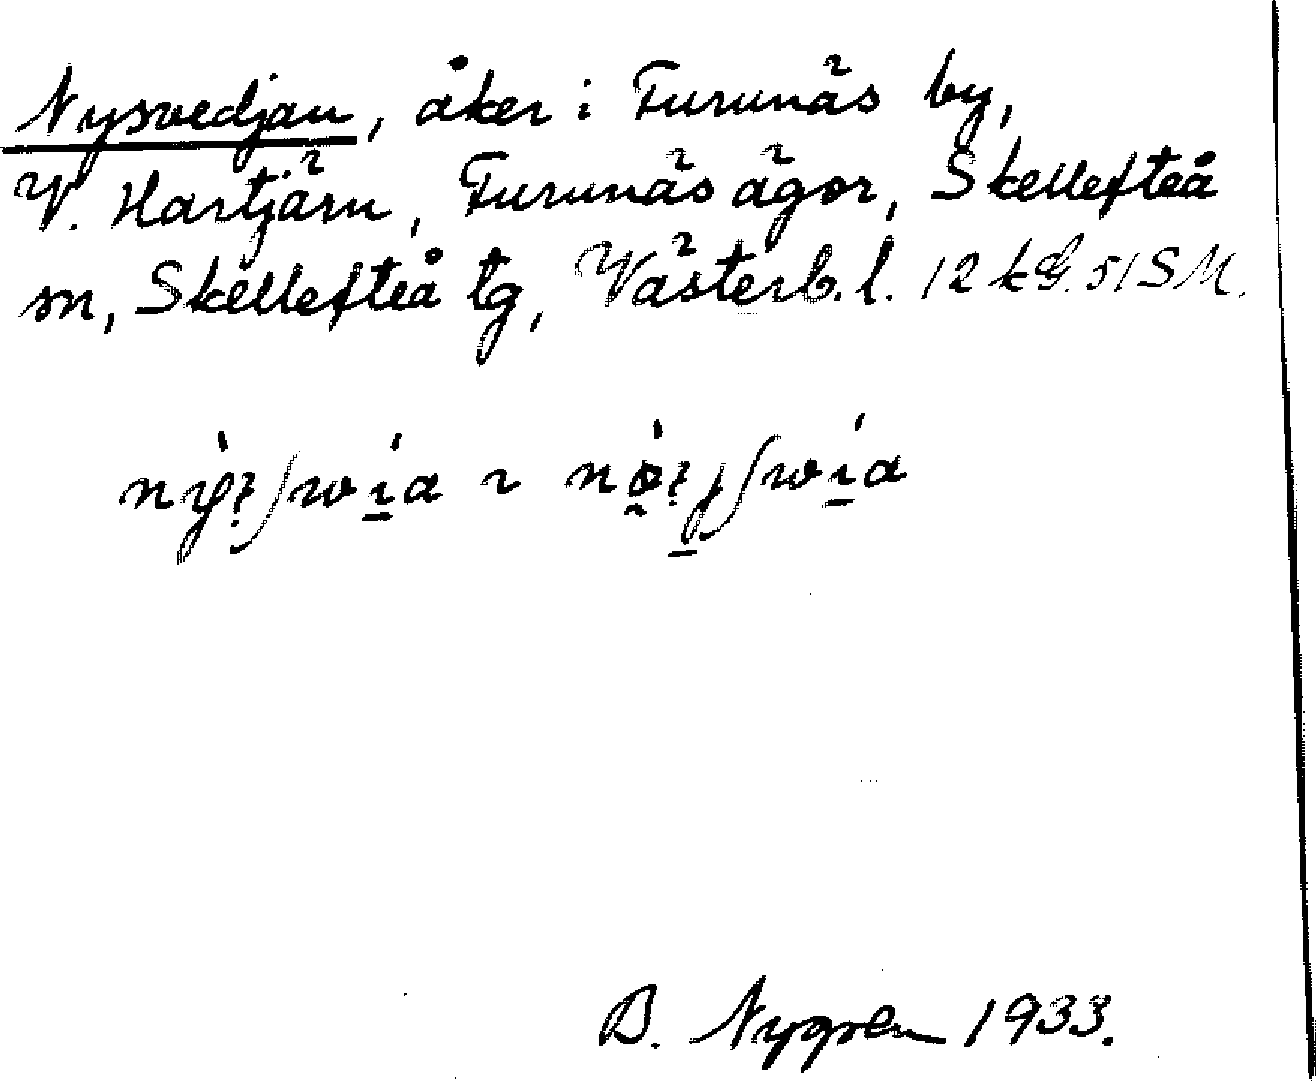 Nysvedjan, åker i Furunäs by,
V. Hartjärn, Furunäs ägor, Skellefteå
sn, Skellefteå tg, Västerb. l. 12 kG. 51 SM.
B. Nygren 1933.